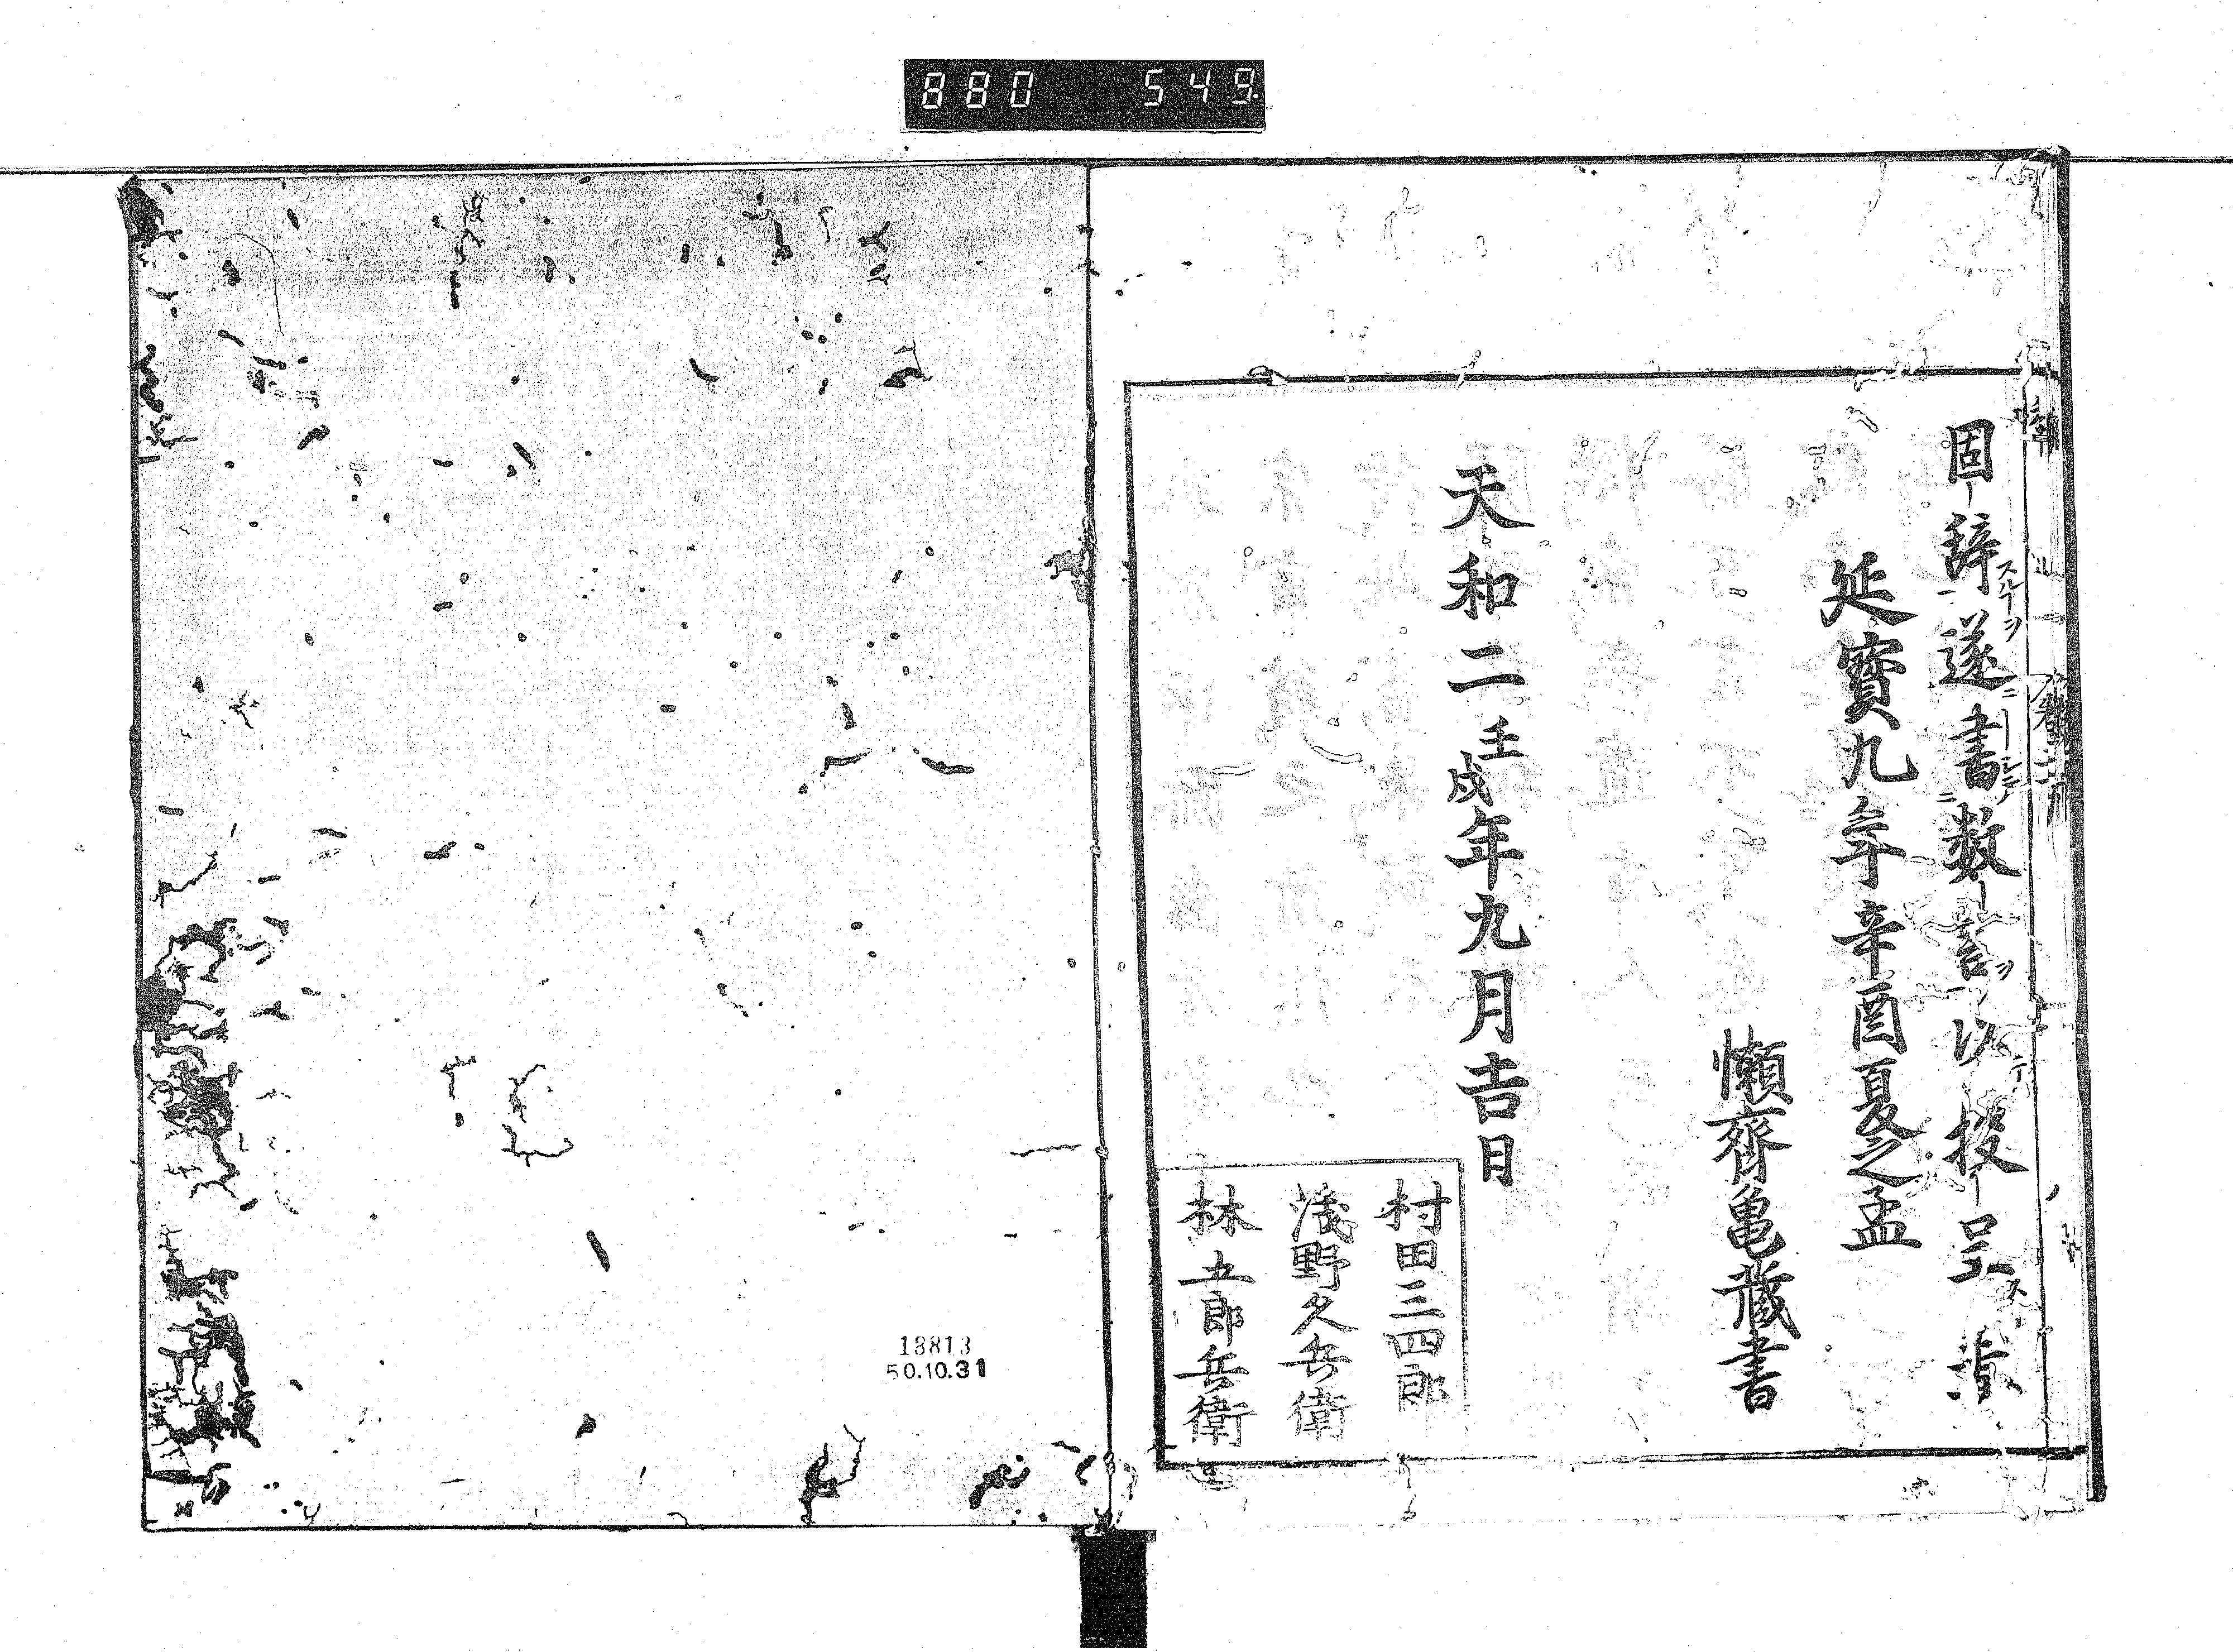 880 549
固辞スルヿヲ遂ニ書シテ数言ヲ以テ授呈ス
延寶九年辛酉夏之孟
懶齊亀藏書
天和二壬戌年九月吉日
村田三四郎
淺野久兵衛
林五郎兵衛
18813
50.10.31